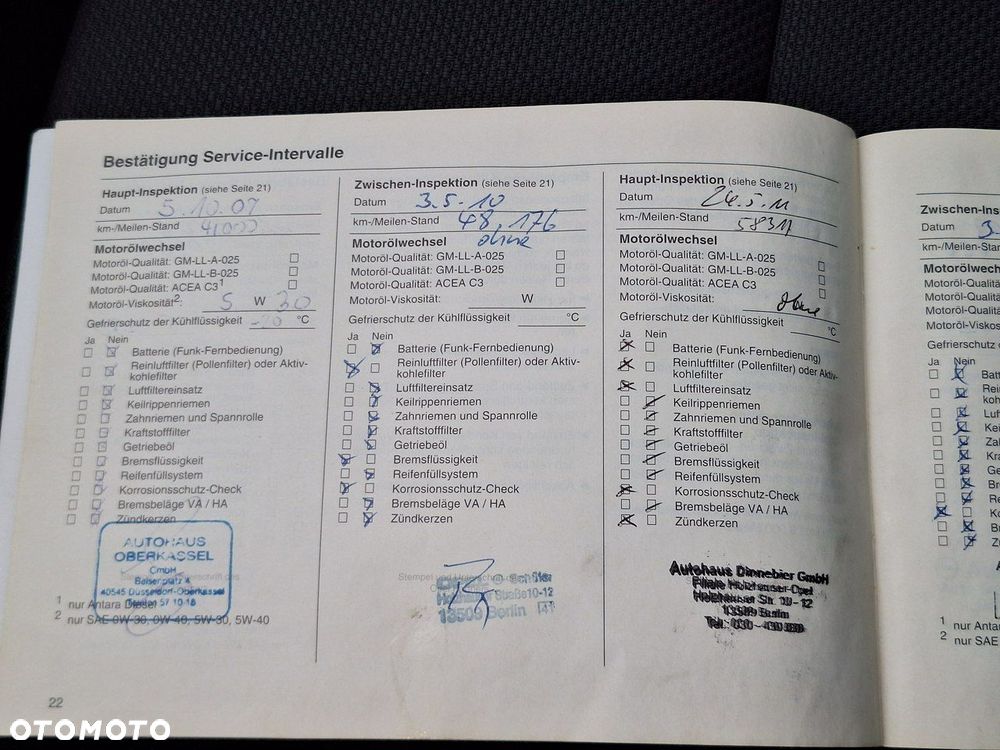 Bestätigung Service-Intervalle
Haupt-Inspektion (siehe Seite 21)
Datum 5.10.07
km-/Meilen-Stand 41000
Motorölwechsel
Motoröl-Qualität: GM-LL-A-025
Motoröl-Qualität: GM-LL-B-025
Motoröl-Qualität: ACEA C3¹
Motoröl-Viskosität²: 5 W 30
Gefrierschutz der Kühlflüssigkeit °C
Ja Nein
Batterie (Funk-Fernbedienung)
Reinluftfilter (Pollenfilter) oder Aktiv-
kohlefilter
Luftfiltereinsatz
Keilrippenriemen
Zahnriemen und Spannrolle
Kraftstofffilter
Getriebeöl
Bremsflüssigkeit
Reifenfüllsystem
Korrosionsschutz-Check
Bremsbeläge VA / HA
Zündkerzen
AUTOHAUS
OBERKASSEL
GmbH
Belsenplatz 4
40545 Düsseldorf-Oberkassel
Telefon 57 10 18
1 nur Antara Diesel
2 nur SAE 0W-30, 0W-40, 5W-30, 5W-40
22
Zwischen-Inspektion (siehe Seite 21)
Datum 3.5.10
km-/Meilen-Stand 48.176
Motorölwechsel ohne
Motoröl-Qualität: GM-LL-A-025
Motoröl-Qualität: GM-LL-B-025
Motoröl-Qualität: ACEA C3
Motoröl-Viskosität: W
Gefrierschutz der Kühlflüssigkeit °C
Ja Nein
Batterie (Funk-Fernbedienung)
Reinluftfilter (Pollenfilter) oder Aktiv-
kohlefilter
Luftfiltereinsatz
Keilrippenriemen
Zahnriemen und Spannrolle
Kraftstofffilter
Getriebeöl
Bremsflüssigkeit
Reifenfüllsystem
Korrosionsschutz-Check
Bremsbeläge VA / HA
Zündkerzen
Stempel und
13509 Berlin
Haupt-Inspektion (siehe Seite 21)
Datum 24.5.11
km-/Meilen-Stand 58311
Motorölwechsel
Motoröl-Qualität: GM-LL-A-025
Motoröl-Qualität: GM-LL-B-025
Motoröl-Qualität: ACEA C3
Motoröl-Viskosität: ohne
Gefrierschutz der Kühlflüssigkeit °C
Ja Nein
Batterie (Funk-Fernbedienung)
Reinluftfilter (Pollenfilter) oder Aktiv-
kohlefilter
Luftfiltereinsatz
Keilrippenriemen
Zahnriemen und Spannrolle
Kraftstofffilter
Getriebeöl
Bremsflüssigkeit
Reifenfüllsystem
Korrosionsschutz-Check
Bremsbeläge VA / HA
Zündkerzen
Autohaus Dinnebier GmbH
Filiale Holzhauser-Opel
Holzhauser Str. 10 - 12
13509 Berlin
Tel.: 030 -
Zwischen-Ins
Datum 3.
km-/Meilen-Stan
Motorölwech
Motoröl-Qualitä
Motoröl-Qualitä
Motoröl-Qualitä
Motoröl-Viskosi
Gefrierschutz d
Ja Nein
Batt
Rein
koh
Luf
Kei
Zal
Kra
Ge
Br
Re
Ko
Br
Zü
1 nur Antar
2 nur SAE
OTOMOTO